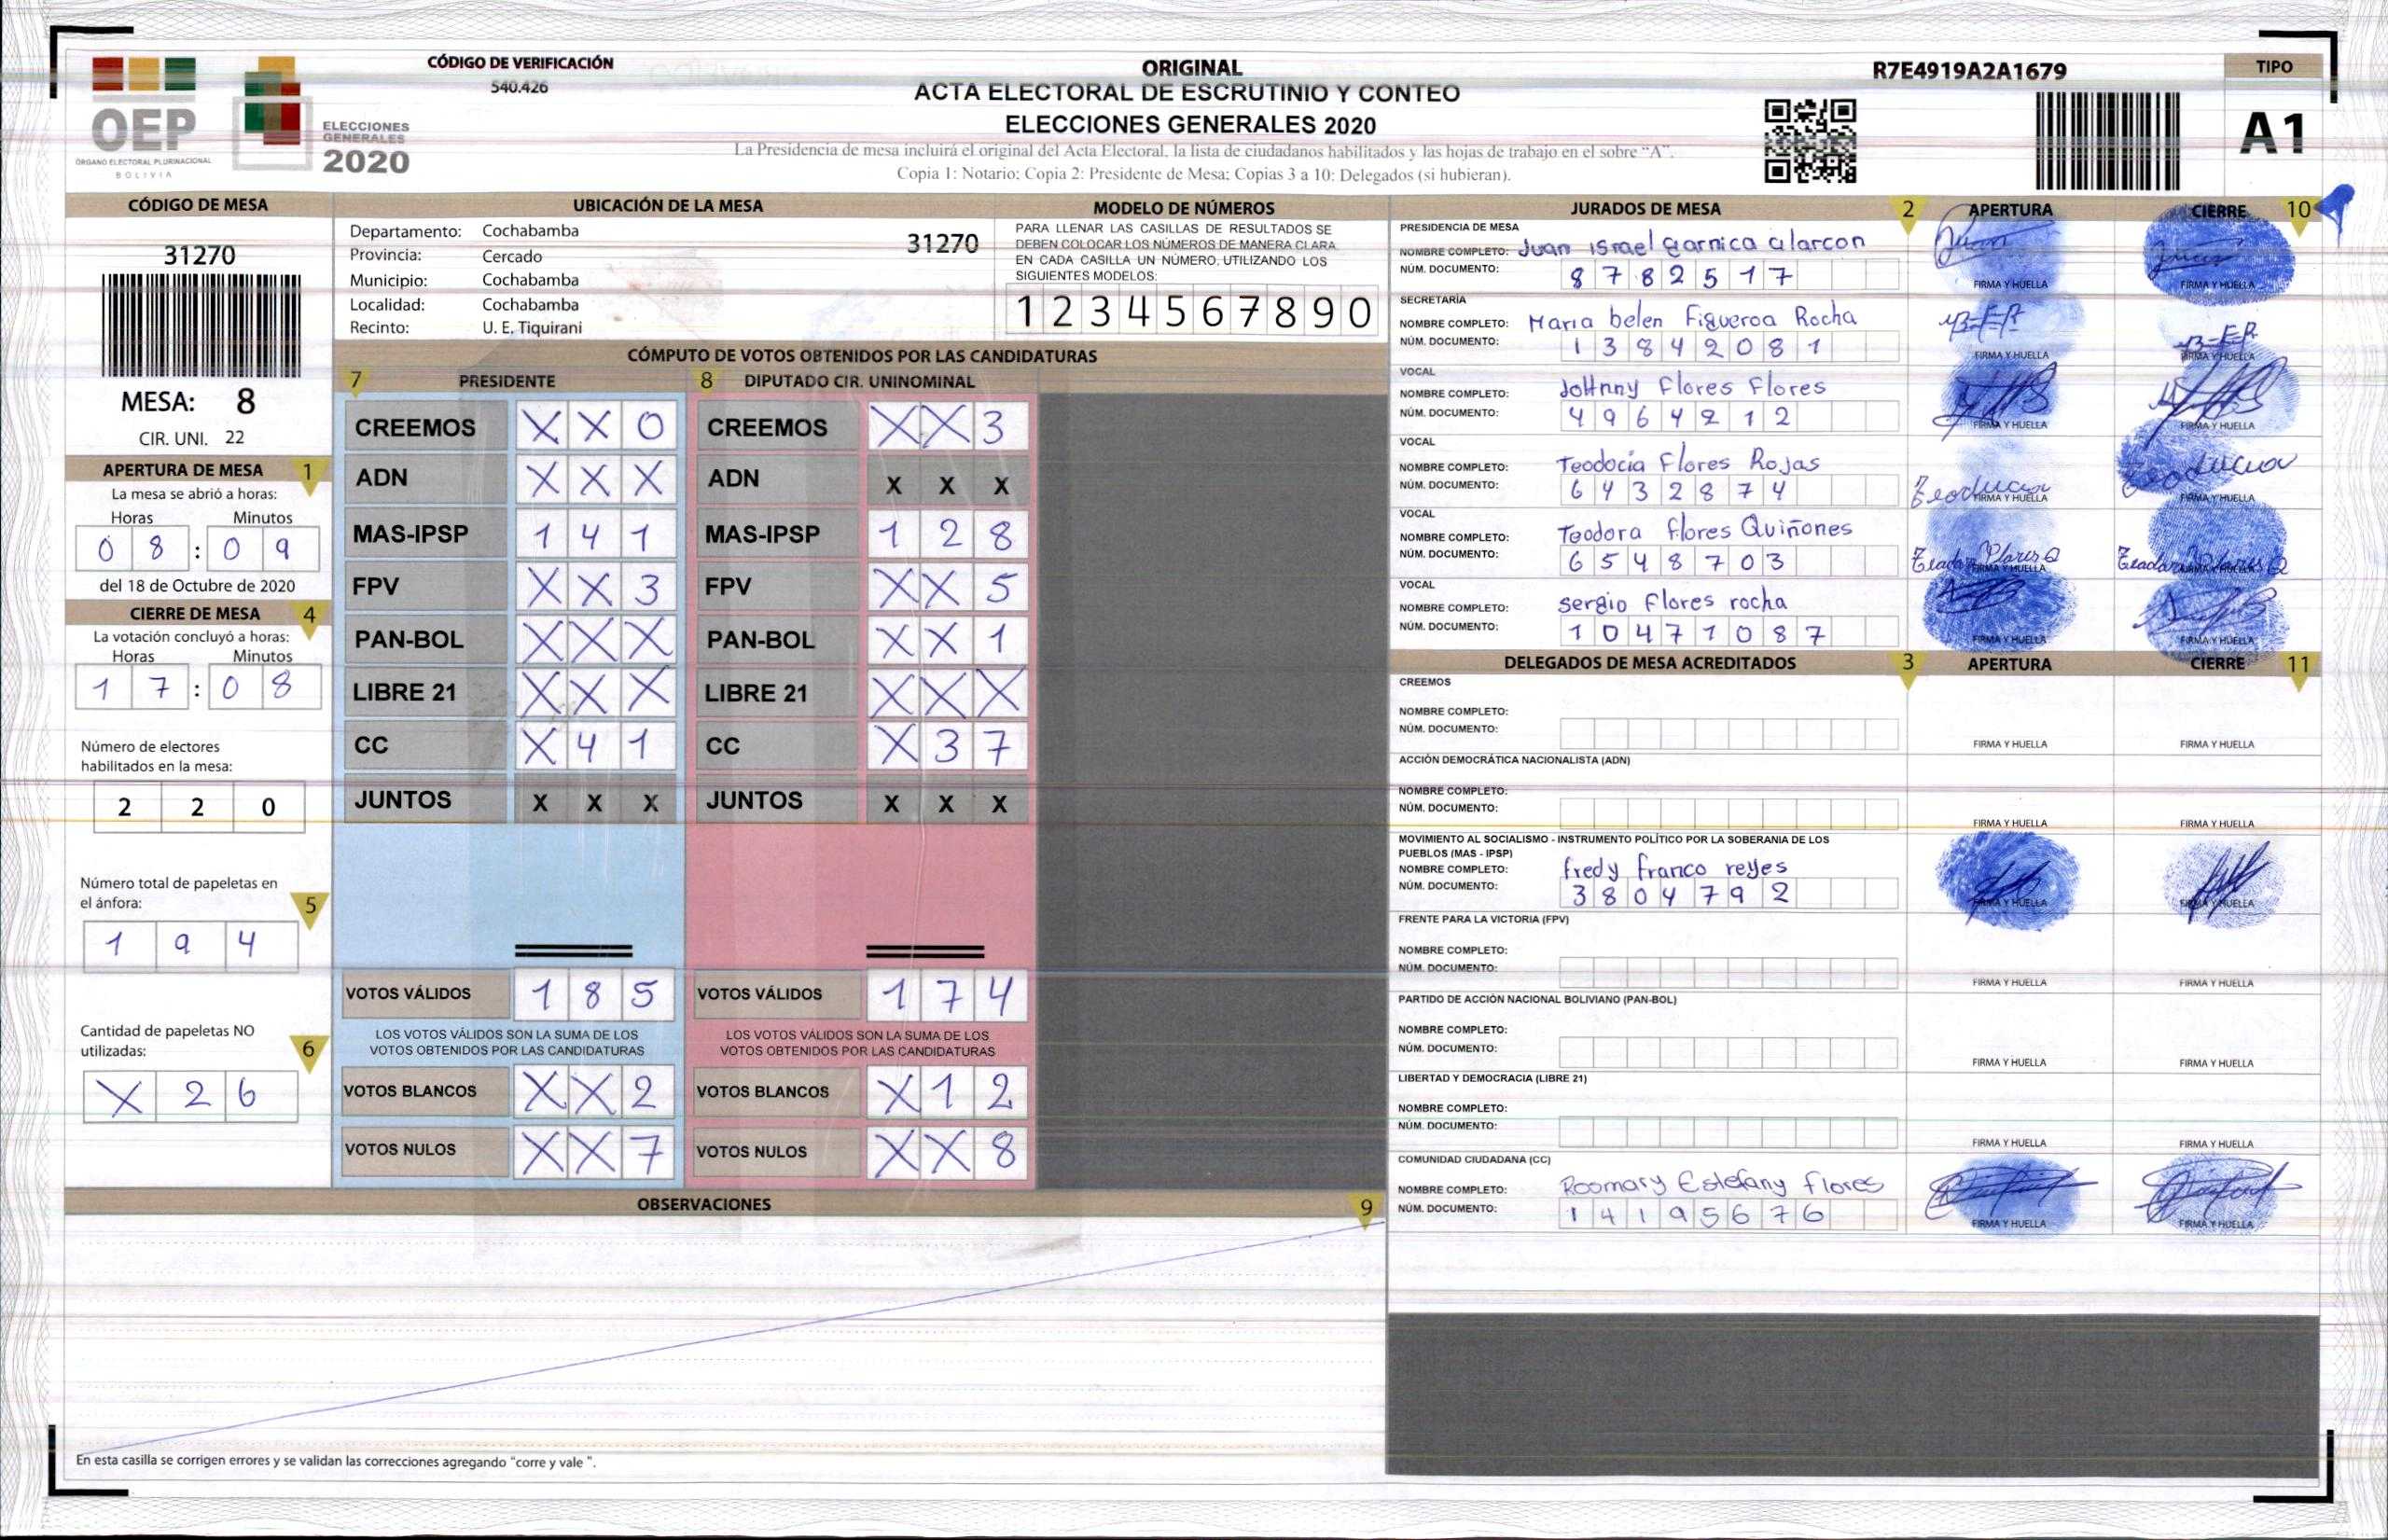 CÓDIGO DE VERIFICACIÓN
540.426
OEP
ÓRGANO ELECTORAL PLURINACIONAL
BOLIVIA
ELECCIONES
GENERALES
2020
ORIGINAL
ACTA ELECTORAL DE ESCRUTINIO Y CONTEO
ELECCIONES GENERALES 2020
La Presidencia de mesa incluirá el original del Acta Electoral, la lista de ciudadanos habilitados y las hojas de trabajo en el sobre “A”.
Copia 1: Notario; Copia 2: Presidente de Mesa; Copias 3 a 10: Delegados (si hubieran).
R7E4919A2A1679
TIPO
A1
CÓDIGO DE MESA
31270
MESA: 8
CIR. UNI. 22
APERTURA DE MESA 1
La mesa se abrió a horas:
Horas Minutos
0 8 : 0 9
del 18 de Octubre de 2020
CIERRE DE MESA 4
La votación concluyó a horas:
Horas Minutos
1 7 : 0 8
Número de electores
habilitados en la mesa:
2 2 0
Número total de papeletas en
el ánfora: 5
1 9 4
Cantidad de papeletas NO
utilizadas: 6
X 2 6
UBICACIÓN DE LA MESA
Departamento: Cochabamba 31270
Provincia: Cercado
Municipio: Cochabamba
Localidad: Cochabamba
Recinto: U. E. Tiquirani
MODELO DE NÚMEROS
PARA LLENAR LAS CASILLAS DE RESULTADOS SE
DEBEN COLOCAR LOS NÚMEROS DE MANERA CLARA
EN CADA CASILLA UN NÚMERO, UTILIZANDO LOS
SIGUIENTES MODELOS:
1 2 3 4 5 6 7 8 9 0
CÓMPUTO DE VOTOS OBTENIDOS POR LAS CANDIDATURAS
7 PRESIDENTE 8 DIPUTADO CIR. UNINOMINAL
CREEMOS X X 0 CREEMOS X X 3
ADN X X X ADN X X X
MAS-IPSP 1 4 1 MAS-IPSP 1 2 8
FPV X X 3 FPV X X 5
PAN-BOL X X X PAN-BOL X X 1
LIBRE 21 X X X LIBRE 21 X X X
CC X 4 1 CC X 3 7
JUNTOS X X X JUNTOS X X X
VOTOS VÁLIDOS 1 8 5 VOTOS VÁLIDOS 1 7 4
LOS VOTOS VÁLIDOS SON LA SUMA DE LOS LOS VOTOS VÁLIDOS SON LA SUMA DE LOS
VOTOS OBTENIDOS POR LAS CANDIDATURAS VOTOS OBTENIDOS POR LAS CANDIDATURAS
VOTOS BLANCOS X X 2 VOTOS BLANCOS X 1 2
VOTOS NULOS X X 7 VOTOS NULOS X X 8
OBSERVACIONES 9
En esta casilla se corrigen errores y se validan las correcciones agregando "corre y vale ".
JURADOS DE MESA 2 APERTURA CIERRE 10
PRESIDENCIA DE MESA
NOMBRE COMPLETO: Juan israel garnica alarcon
NÚM. DOCUMENTO: 8 7 8 2 5 1 7
FIRMA Y HUELLA FIRMA Y HUELLA
SECRETARÍA
NOMBRE COMPLETO: Maria belen Figueroa Rocha
NÚM. DOCUMENTO: 1 3 8 4 2 0 8 1
FIRMA Y HUELLA FIRMA Y HUELLA
VOCAL
NOMBRE COMPLETO: JoHnny Flores Flores
NÚM. DOCUMENTO: 4 9 6 4 2 1 2
FIRMA Y HUELLA FIRMA Y HUELLA
VOCAL
NOMBRE COMPLETO: Teodocia Flores Rojas
NÚM. DOCUMENTO: 6 4 3 2 8 7 4
FIRMA Y HUELLA FIRMA Y HUELLA
VOCAL
NOMBRE COMPLETO: Teodora flores Quiñones
NÚM. DOCUMENTO: 6 5 4 8 7 0 3
FIRMA Y HUELLA FIRMA Y HUELLA
VOCAL
NOMBRE COMPLETO: sergio flores rocha
NÚM. DOCUMENTO: 1 0 4 7 1 0 8 7
FIRMA Y HUELLA FIRMA Y HUELLA
DELEGADOS DE MESA ACREDITADOS 3 APERTURA CIERRE 11
CREEMOS
NOMBRE COMPLETO:
NÚM. DOCUMENTO:
FIRMA Y HUELLA FIRMA Y HUELLA
ACCIÓN DEMOCRÁTICA NACIONALISTA (ADN)
NOMBRE COMPLETO:
NÚM. DOCUMENTO:
FIRMA Y HUELLA FIRMA Y HUELLA
MOVIMIENTO AL SOCIALISMO - INSTRUMENTO POLÍTICO POR LA SOBERANIA DE LOS
PUEBLOS (MAS - IPSP)
NOMBRE COMPLETO: fredy franco reyes
NÚM. DOCUMENTO: 3 8 0 4 7 9 2
FIRMA Y HUELLA FIRMA Y HUELLA
FRENTE PARA LA VICTORIA (FPV)
NOMBRE COMPLETO:
NÚM. DOCUMENTO:
FIRMA Y HUELLA FIRMA Y HUELLA
PARTIDO DE ACCIÓN NACIONAL BOLIVIANO (PAN-BOL)
NOMBRE COMPLETO:
NÚM. DOCUMENTO:
FIRMA Y HUELLA FIRMA Y HUELLA
LIBERTAD Y DEMOCRACIA (LIBRE 21)
NOMBRE COMPLETO:
NÚM. DOCUMENTO:
FIRMA Y HUELLA FIRMA Y HUELLA
COMUNIDAD CIUDADANA (CC)
NOMBRE COMPLETO: Roomary Estefany flores
NÚM. DOCUMENTO: 1 4 1 9 5 6 7 6
FIRMA Y HUELLA FIRMA Y HUELLA